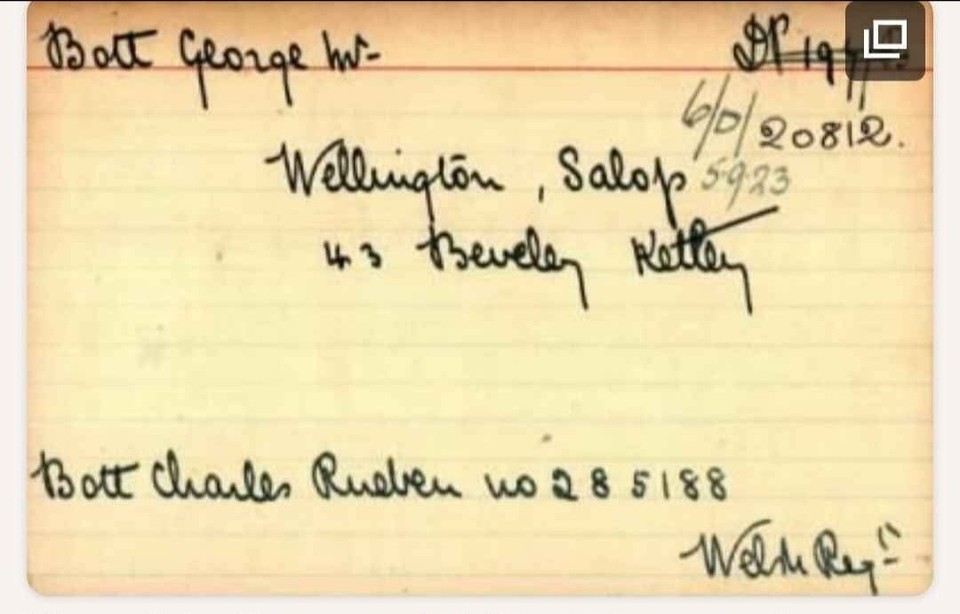 Bott George Mr DP 197
6/0/20812.
Wellington, Salop 5923
43 Beveley Ketley
Bott Charles Rueben no 285188
Welsh Regt